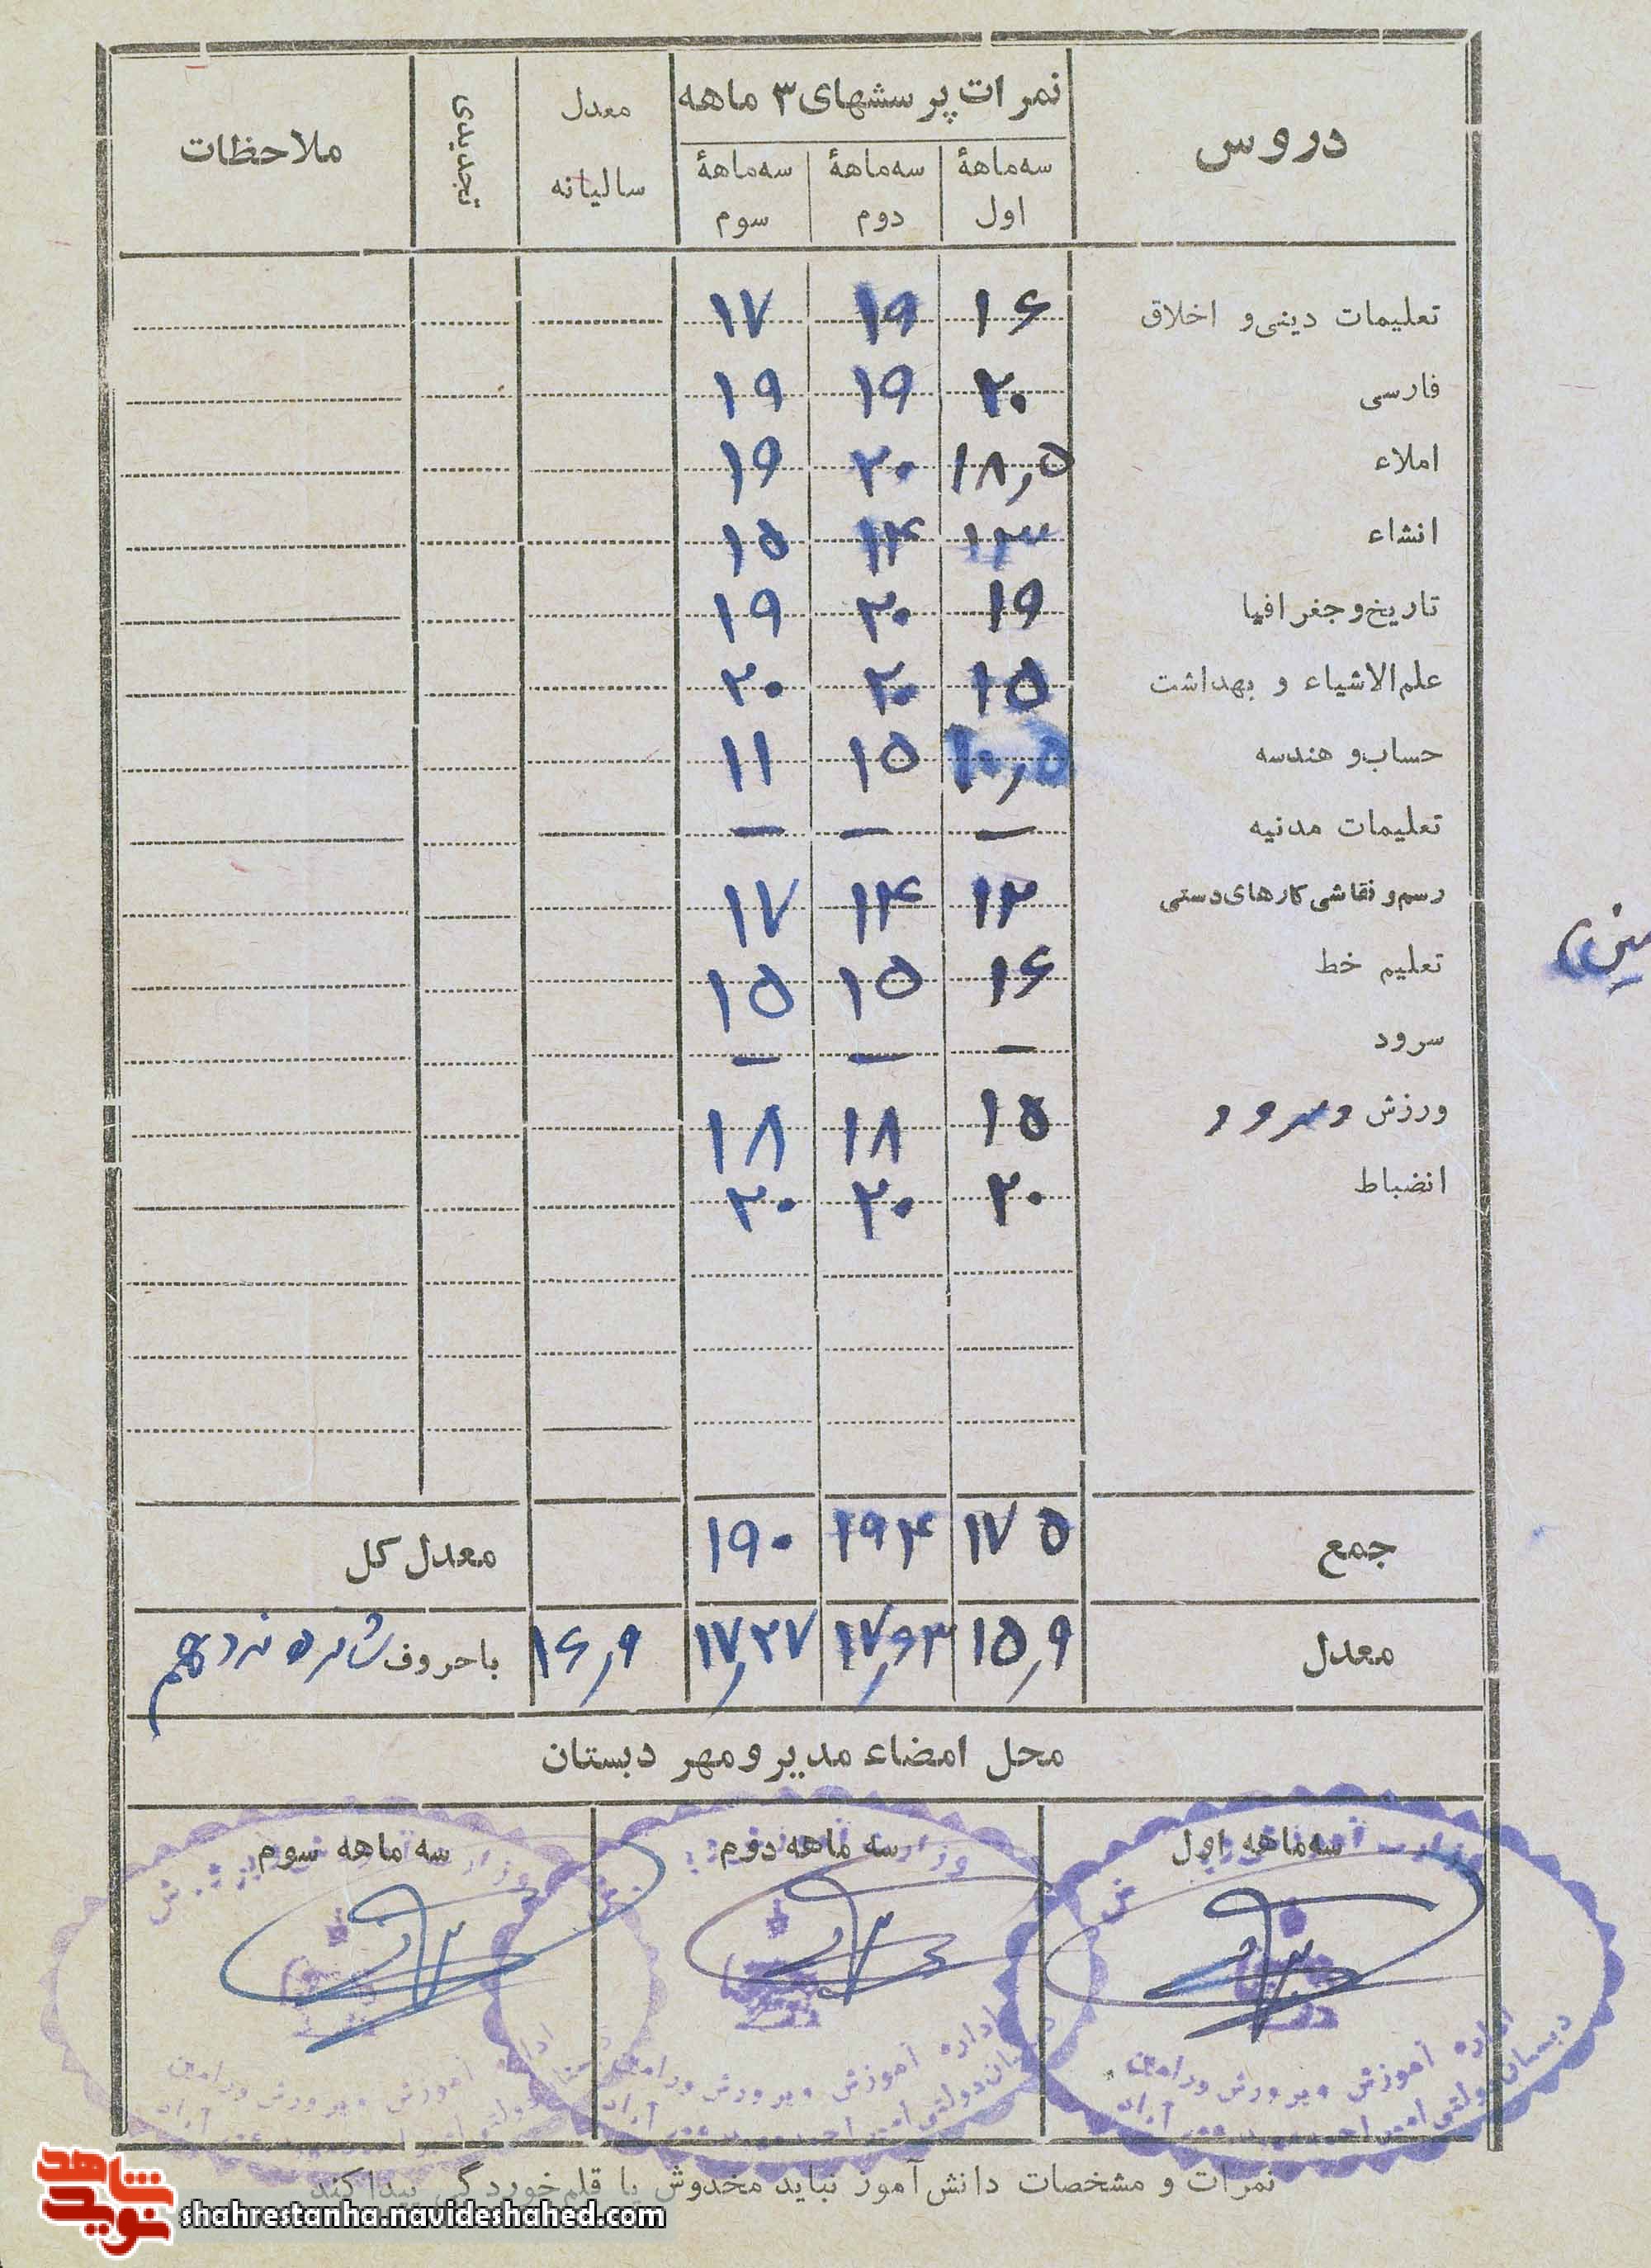 دروس نمرات پرسشهای ۳ ماهه معدل سالیانه تجدیدی ملاحظات
سه‌ماههٔ اول سه‌ماههٔ دوم سه‌ماههٔ سوم
تعلیمات دینی و اخلاق ۱۶ ۱۹ ۱۷
فارسی ۲۰ ۱۹ ۱۹
املاء ۱۸٫۵ ۲۰ ۱۹
انشاء ۱۳ ۱۴ ۱۵
تاریخ و جغرافیا ۱۹ ۲۰ ۱۹
علم‌الاشیاء و بهداشت ۱۵ ۲۰ ۲۰
حساب و هندسه ۱۰٫۵ ۱۵ ۱۱
تعلیمات مدنیه — — —
رسم و نقاشی کارهای دستی ۱۲ ۱۴ ۱۷
تعلیم خط ۱۶ ۱۵ ۱۵
سرود — — —
ورزش و سرود ۱۵ ۱۸ ۱۸
انضباط ۲۰ ۲۰ ۲۰
جمع ۱۷۵ ۱۹۴ ۱۹۰ معدل کل
معدل ۱۵٫۹ ۱۷٫۶۳ ۱۷٫۲۷ ۱۶٫۹ باحروف شانزده نه دهم
محل امضاء مدیر و مهر دبستان
سه ماهه اول سه ماهه دوم سه ماهه سوم
وزارت آموزش و پرورش
اداره آموزش و پرورش ورامین
نمرات و مشخصات دانش‌آموز نباید مخدوش یا قلم خوردگی پیدا کند
نوید شاهد
shahrestanha.navideshahed.com